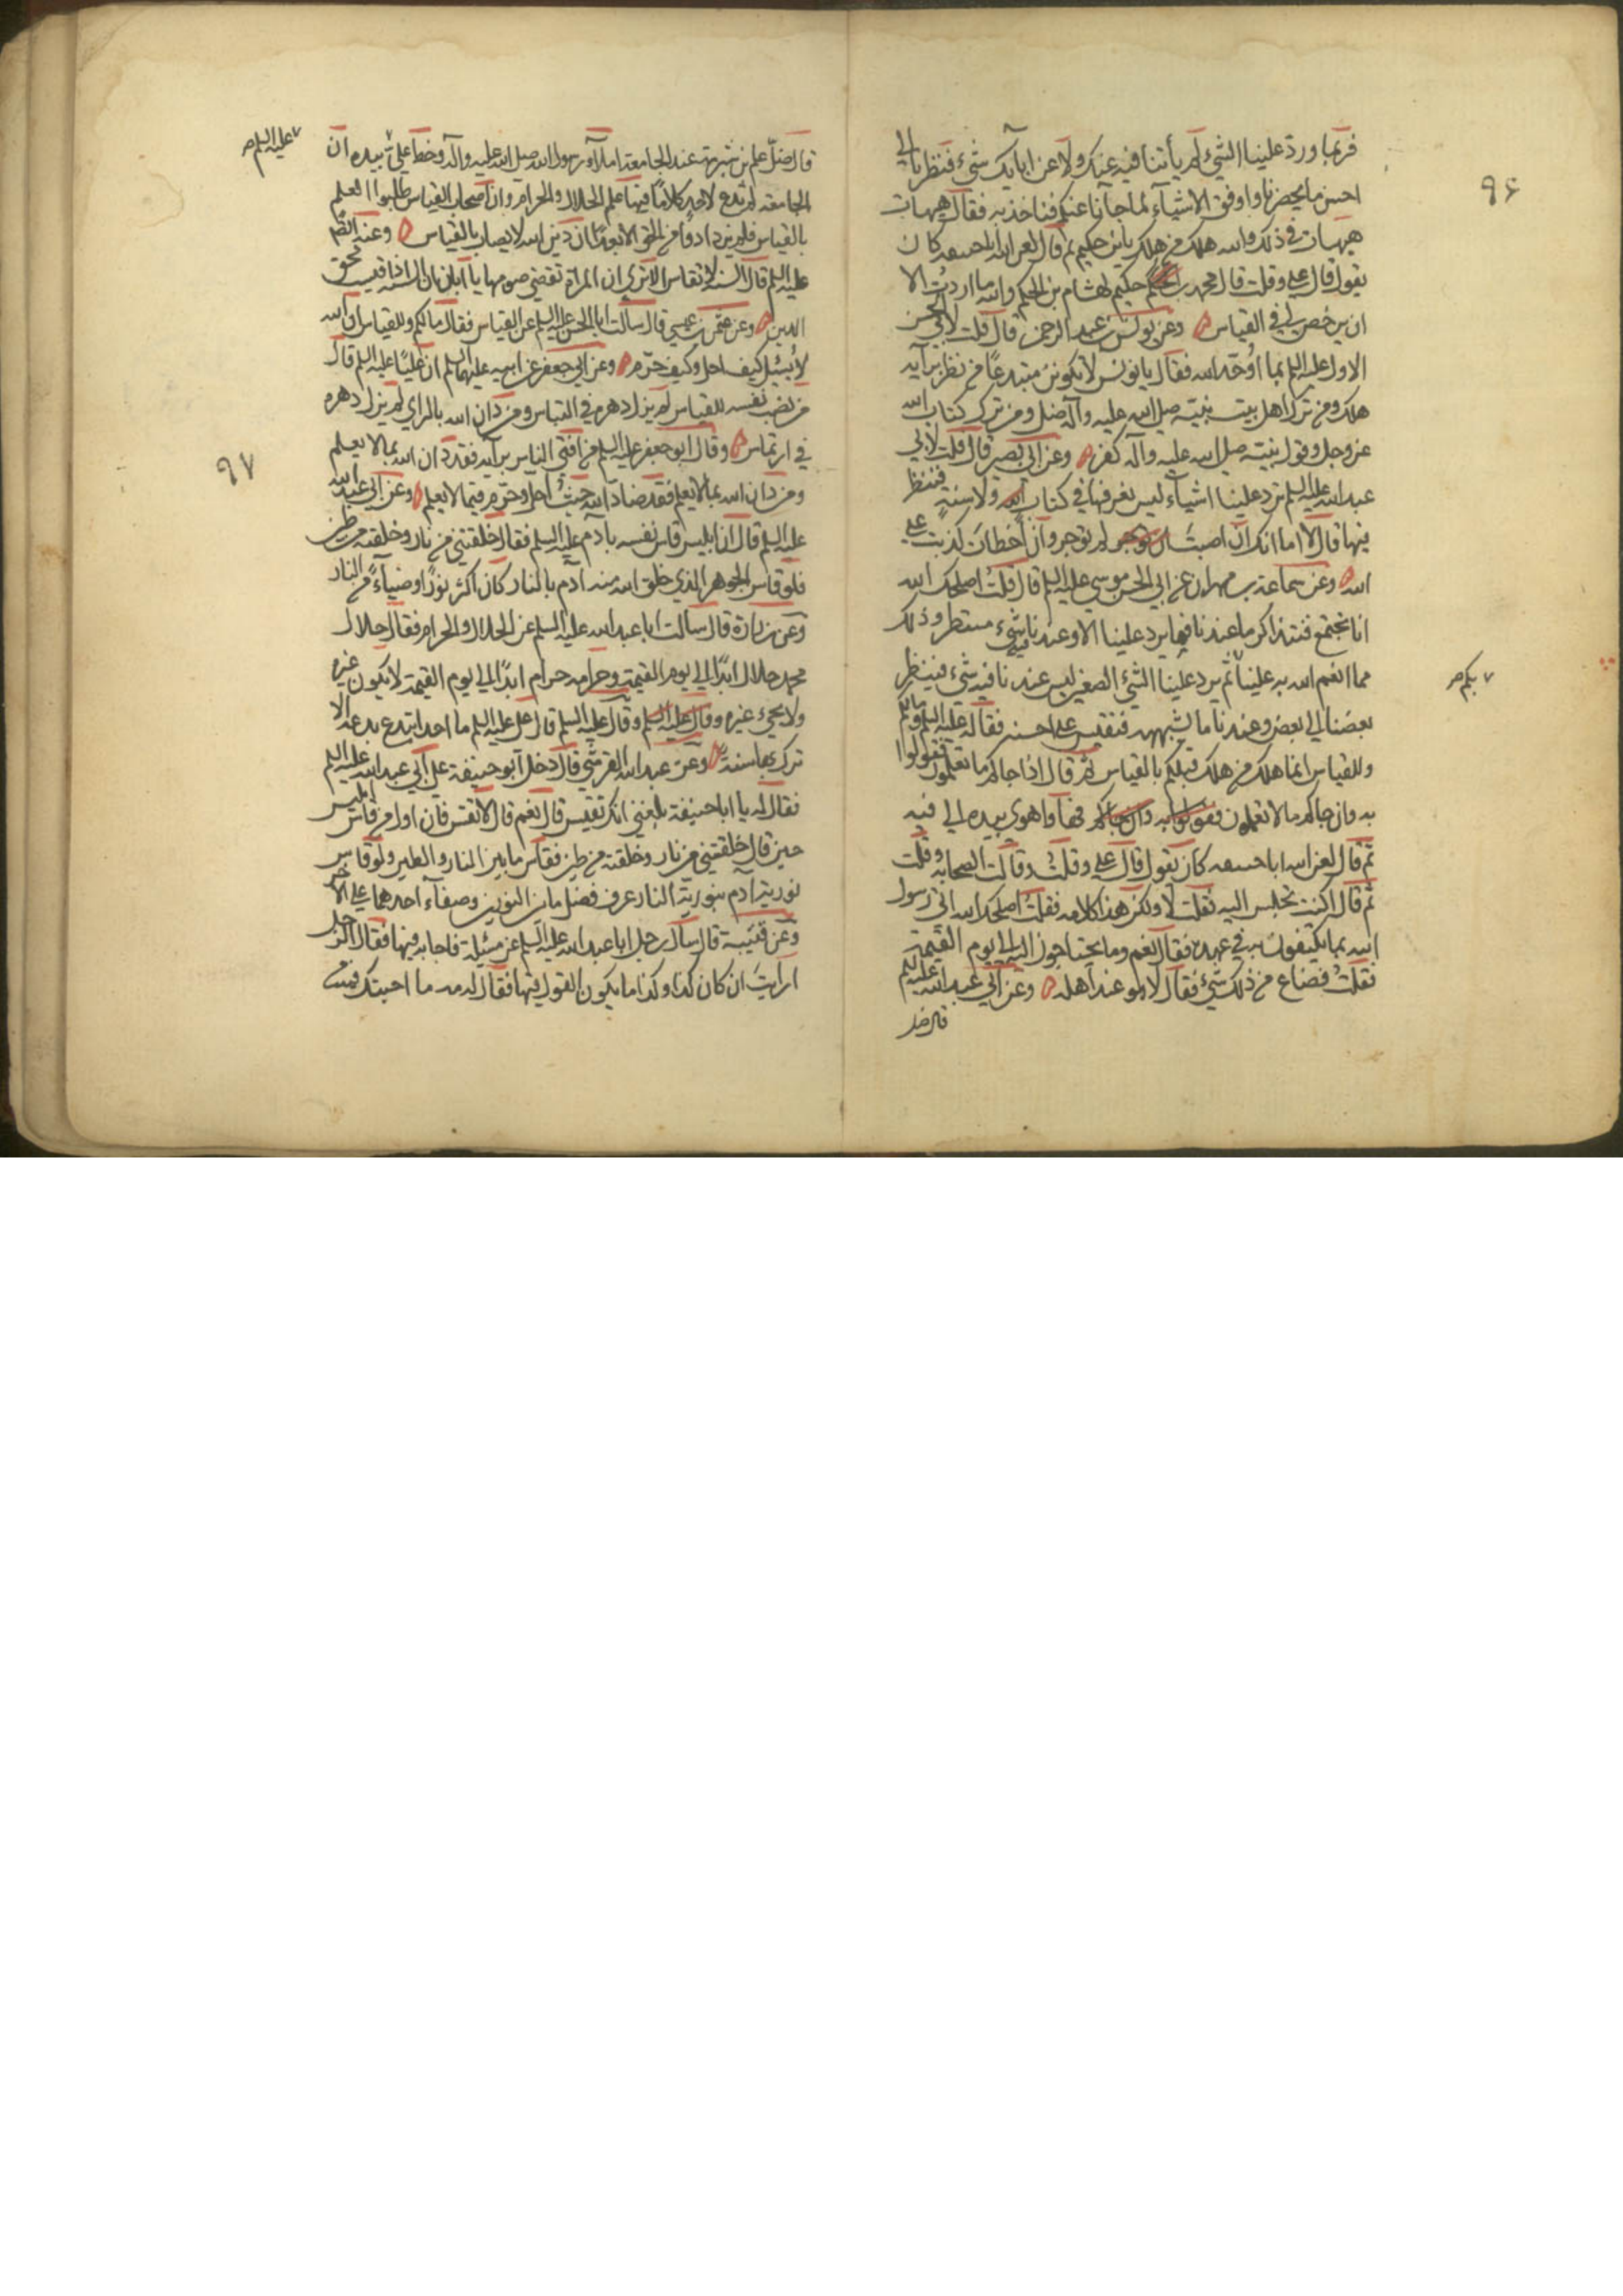 ٩۶
فربما ورد علينا الشيء لم يأتنا فيه عنك ولا عن ابايك شيء فنظرنا الى
احسن ما يحضرنا واوفق الاشياء لما جاءنا عنكم فناخذ به فقال هيهات
هيهات في ذلك والله هلك من هلك يا بن حكيم ثم قال لعن الله اباحنيفه كان
يقول قال علي وقلت قال محمد بن حكيم لهشام بن الحكم والله ما اردت الا
ان يرخص لي في القياس وعن يونس بن عبد الرحمن قال قلت لابي الحسن
الاول عليه السلم بما اوحد الله فقال يا يونس لا تكونن مبتدعا من نظر برأيه
هلك ومن ترك اهل بيت نبيه صلى الله عليه وآله ضل ومن ترك كتاب الله
عز وجل وقول نبيه صلى الله عليه وآله كفر وعن ابي بصير قال قلت لابي
عبد الله عليه السلم ترد علينا اشياء ليس نعرفها في كتاب الله ولا سنة فننظر
فيها قال لا اما انك ان اصبت لم توجر وان اخطأت كذبت على
الله وعن سماعة بن مهران عن ابي الحسن موسى عليه السلم قال قلت اصلحك الله
انا نجتمع فنتذاكر ما عندنا فما يرد علينا الا وعندنا فيه شيء مستطر وذلك
مما انعم الله به علينا ثم يرد علينا الشيء الصغير ليس عندنا فيه شيء فينظر
بكم صح
بعضنا الى بعض وعندنا ما يشبهه فنقيس على احسنه فقال عليه السلم وما لكم
وللقياس انما هلك من هلك قبلكم بالقياس ثم قال اذا جاكم ما تعلمون فقولوا
به وان جاكم ما لا تعلمون فها واهوى بيده الى فيه
ثم قال لعن الله اباحنيفه كان يقول قال علي وقلت وقالت الصحابه وقلت
ثم قال اكنت تجلس اليه فقلت لا ولكن هذا كلامه فقلت اصلحك الله اتى رسول
الله بما يكتفون به في عهده فقال نعم وما يحتاجون اليه الى يوم القيمة
فقلت فضاع من ذلك شيء فقال لا هو عند اهله وعن ابي عبد الله عليه السلم
قال ضل
قال ضل علم بن شبرمة عند الجامعة املاء رسول الله صلى الله عليه وآله وخط علي بيده ان
عليه السلم صح
الجامعة لم تدع لاحد كلاما فيها علم الحلال والحرام وان اصحاب القياس طلبوا العلم
بالقياس فلم يزدادوا من الحق الا بعدا ان دين الله لا يصاب بالقياس وعنه ايضا
عليه السلم قال السنة لا تقاس الا ترى ان المراة تقضي صومها يا ابان ان السنة اذا قيست محق
الدين وعن عثمن بن عيسى قال سالت ابا الحسن عليه السلم عن القياس فقال ما لكم وللقياس ان الله
لا يسئل كيف احل وكيف حرم وعن ابي جعفر عن ابيه عليهما السلم ان عليا عليه السلم قال
من نصب نفسه للقياس لم يزل دهره في التباس ومن دان الله بالراي لم يزل دهره
في ارتماس وقال ابو جعفر عليه السلم من افتى الناس برأيه فقد دان الله بما لا يعلم
٩٧
ومن دان الله بما لا يعلم فقد ضاد الله حيث احل وحرم فيما لا يعلم وعن ابي عبد الله
عليه السلم قال ان ابليس قاس نفسه بادم عليه السلم فقال خلقتني من نار وخلقته من طين
فلو قاس الجوهر الذي خلق الله منه ادم بالنار كان اكثر نورا وضياء من النار
وعن زرارة قال سالت ابا عبد الله عليه السلم عن الحلال والحرام فقال حلال
محمد حلال ابدا الى يوم القيمة وحرامه حرام ابدا الى يوم القيمة لا يكون غيره
ولا يجيء غيره وقال عليه السلم قال علي عليه السلم ما احد ابتدع بدعة الا
ترك بها سنة وعن عبد الله القرشي قال دخل ابو حنيفة على ابي عبد الله عليه السلم
فقال له يا اباحنيفة بلغني انك تقيس قال نعم قال لا تقس فان اول من قاس ابليس
حين قال خلقتني من نار وخلقته من طين فقاس ما بين النار والطين ولو قاس
نورية آدم بنورية النار عرف فضل ما بين النورين وصفاء احدهما على الاخر
وعن قتيبة قال سأل رجل ابا عبد الله عليه السلم عن مسئلة فاجابه فيها فقال الرجل
ارايت ان كان كذا وكذا ما يكون القول فيها فقال له مه ما اجبتك فيه